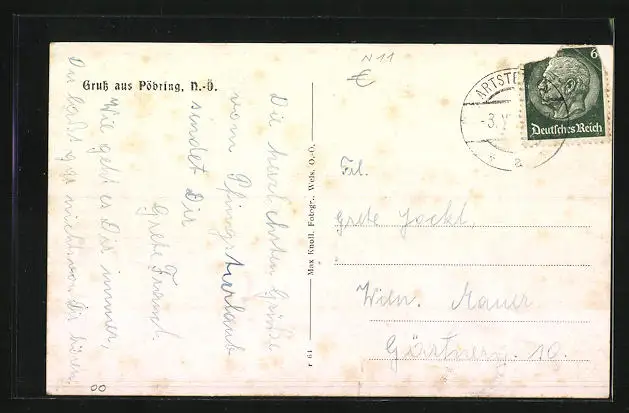 Gruß aus Pöbring, N.-Ö.
Die herzlichsten Grüße
vom Pfingsturlaub
sendet Dir
Grete Franch.
Wie geht es Dir immer,
Du laßt ja gar nichts von Dir hören!
Max Knoll, Fotogr., Wels, O.-Ö.
N 11
€
ARTSTE
-3. V
a
6
Deutsches Reich
Frl.
Grete Jockl,
Wien. Mauer
Gärtnerg. 10.
00